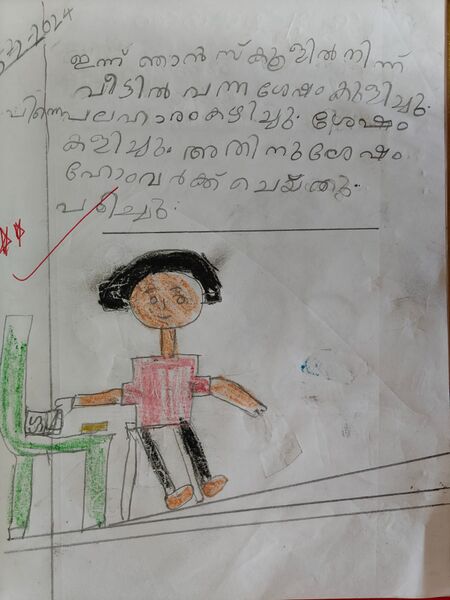 2024
ഇന്ന് ഞാൻ സ്കൂളിൽ നിന്ന്
വീട്ടിൽ വന്ന ശേഷം കുളിച്ചു.
പിന്നെ പലഹാരം കഴിച്ചു. ശേഷം
കളിച്ചു. അതിനുശേഷം
ഹോംവർക്ക് ചെയ്തു.
പഠിച്ചു.